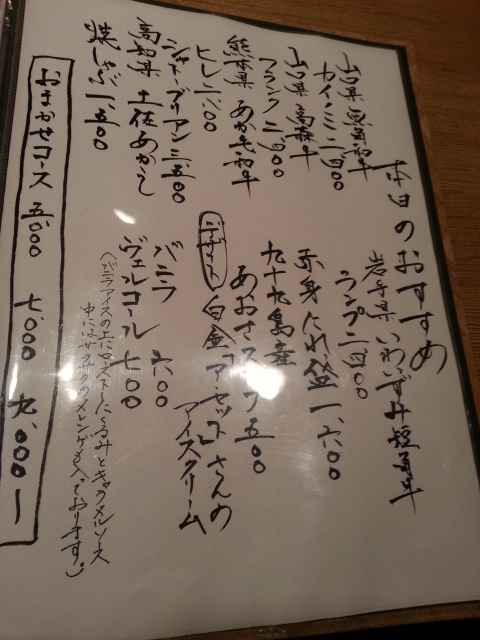 本日のおすすめ
岩手県 いわいずみ短角牛
ランプ 二、四〇〇
赤身たれ焼 一、六〇〇
九十九島産
あおさスープ 五〇〇
山口県 無角和牛
カイノミ 二、四〇〇
山口県 高森牛
フランク 二、四〇〇
熊本県 あか毛和牛
ヒレ 二、八〇〇
シャトーブリアン 三、五〇〇
高知県 土佐あかうし
焼しゃぶ 一、五〇〇
デザート
白金「アーセット」さんの
アイスクリーム
バニラ 六〇〇
ヴェルコール 七〇〇
(バニラアイスの上にローストしたくるみとキャラメルソース
中にはサクサクのメレンゲも入っております。)
おまかせコース 五、〇〇〇 七、〇〇〇 九、〇〇〇〜